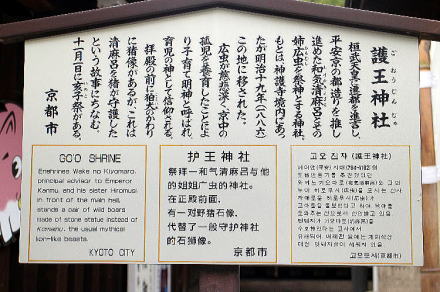 護王神社
ごおうじんじゃ
桓武天皇に遷都を進言し
平安京の都造りを推し
進めた和気清麻呂とその
姉広虫を祭神とする神社。
もとは神護寺境内にあっ
たが明治十九年(一八八六)
この地に移された。
広虫が慈悲深く、京中の
孤児を養育したことによ
り子育て明神と呼ばれ、
育児の神として信仰される。
拝殿の前に狛犬のかわり
に猪像があるが、これは
清麻呂を猪が守護した
という故事にちなむ。
十一月一日に亥子祭がある。
京都市
GO'O SHRINE
Enshrines Wake no Kiyomaro,
principal advisor to Emperor
Kanmu, and his sister Hiromusi
In front of the main hall,
stands a pair of wild boars
made of stone statue instead of
Komainu, the usual mythical
lion-like beasts.
KYOTO CITY
护王神社
祭拜一和气清麻吕与他
的姐姐广虫的神社。
在正殿前面,
有一对野猪石像,
代替了一般守护神社
的石狮像。
京都市
고오 진자 (護王神社)
고오토시(京都市)